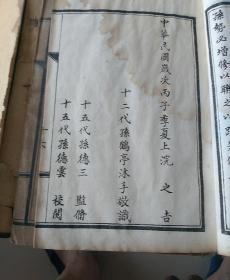 孫好必增修以聯之以
中華民國歲次丙子季夏上浣之吉
十二代孫鶴亭沐手敬識
十五代孫德三監脩
十五代孫德雲校閱